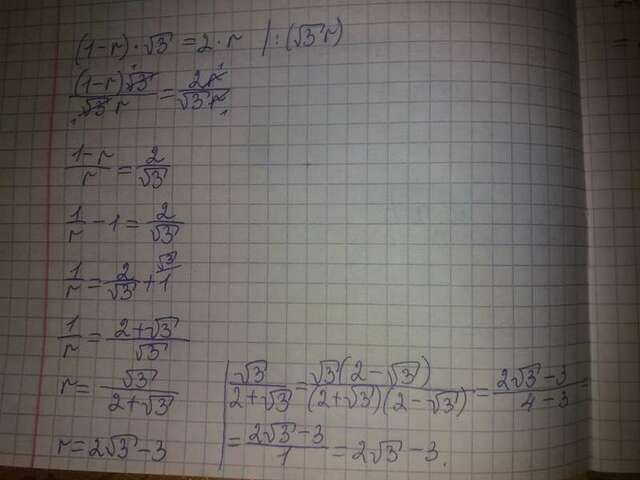 (1-r)·√3 = 2·r |:(√3 r)
(1-r)√3 / √3 r = 2r / √3 r
1-r / r = 2 / √3
1/r - 1 = 2/√3
1/r = 2/√3 + 1/1 √3
1/r = 2+√3 / √3
r = √3 / 2+√3
r = 2√3 - 3
√3 / 2+√3 = √3(2-√3) / (2+√3)(2-√3) = 2√3-3 / 4-3 =
= 2√3-3 / 1 = 2√3-3.